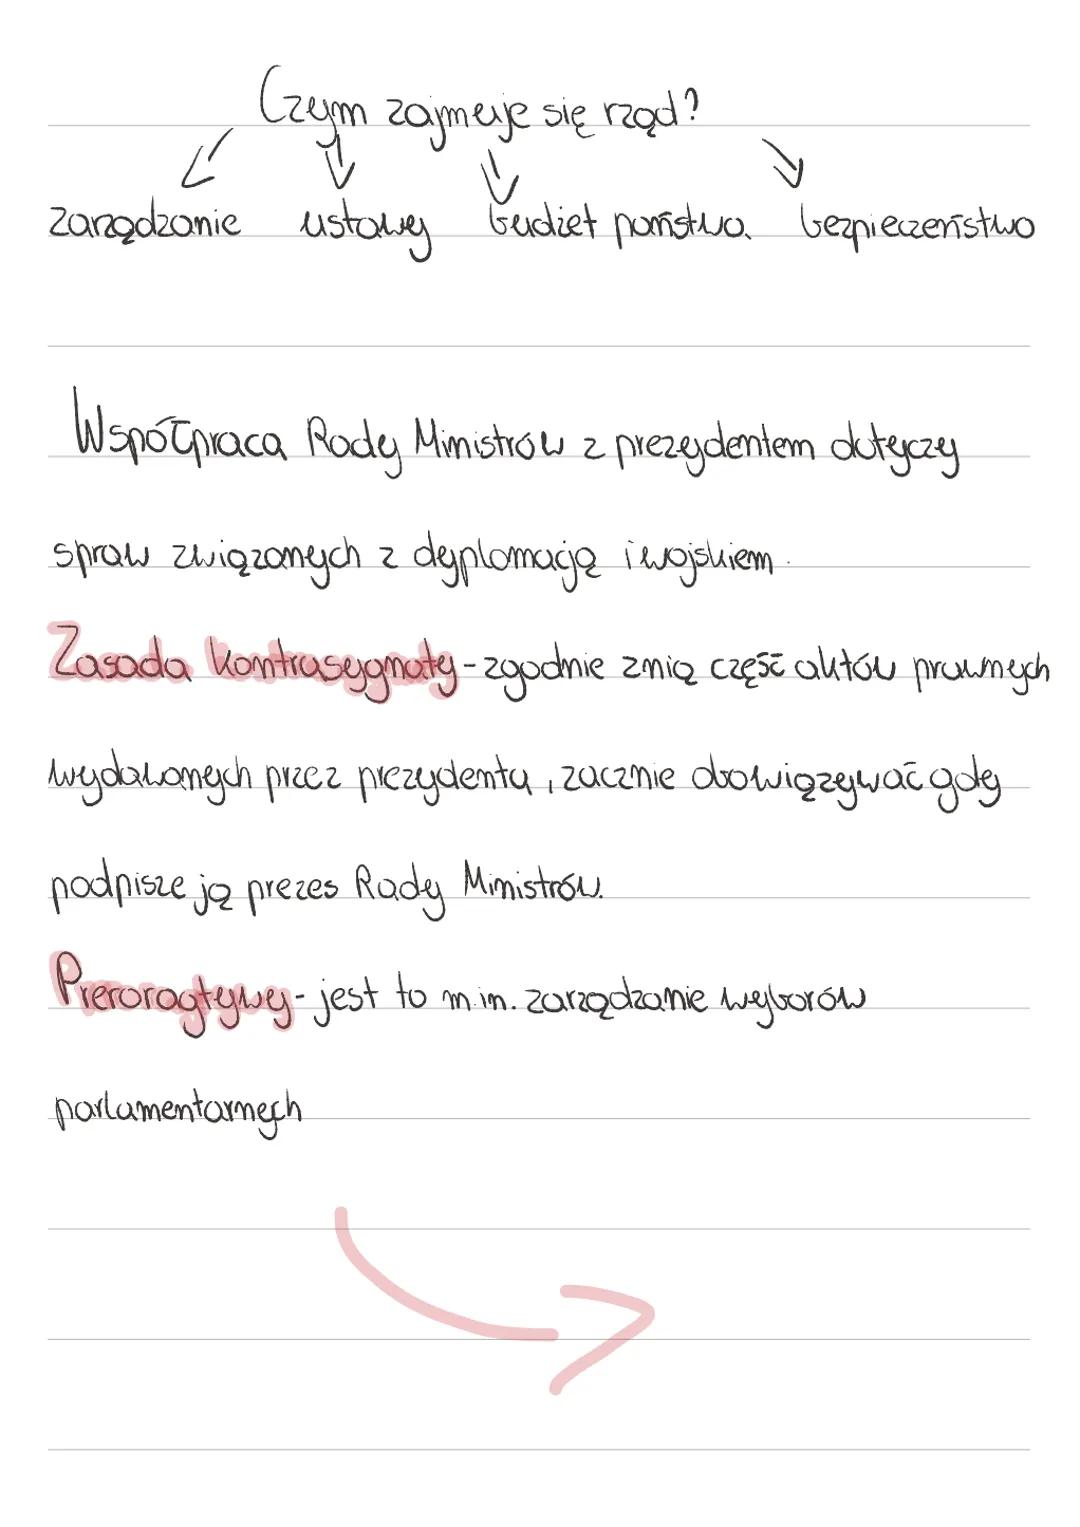 Czym zajmuje się rząd?
zarządzanie ustawy budżet państwa bezpieczeństwo
Współpraca Rady Ministrów z prezydentem dotyczy
spraw związanych z dyplomacją i wojskiem.
Zasada kontrasygnaty - zgodnie z nią część aktów prawnych
wydawanych przez prezydenta, zacznie obowiązywać gdy
podpisze ją prezes Rady Ministrów.
Preroragtywy - jest to m.in. zarządzanie wyborów
parlamentarnych